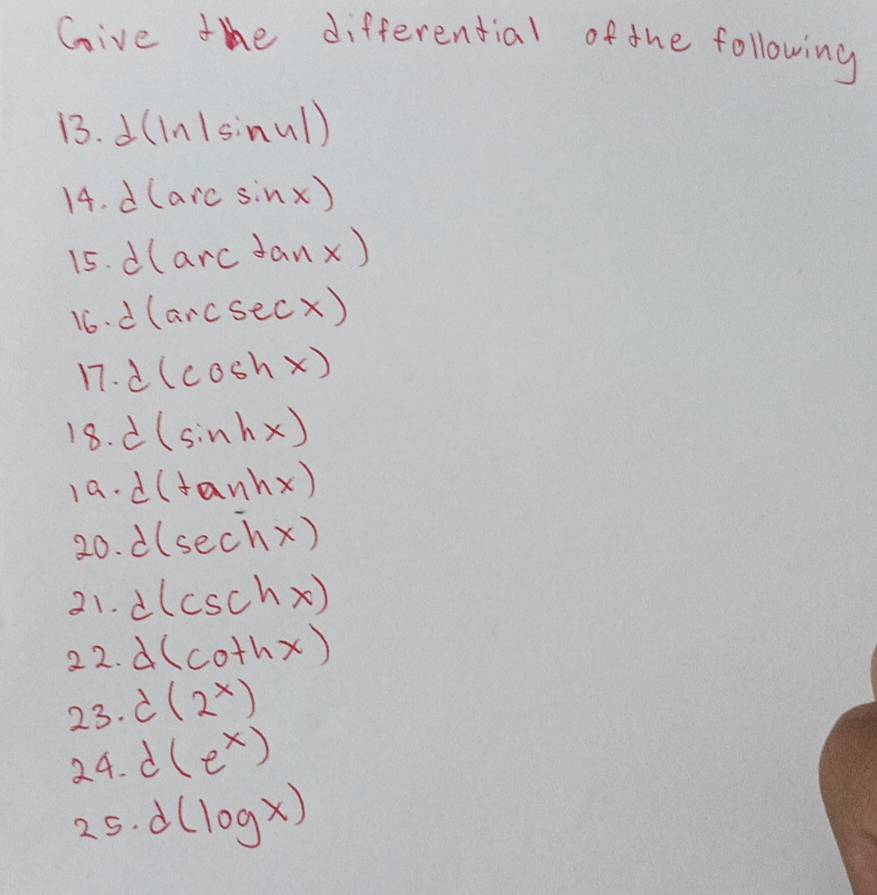 Give the differential of the following
13. d(ln|sinu|)
14. d(arc sinx)
15. d(arc tanx)
16. d(arcsecx)
17. d(coshx)
18. d(sinhx)
19. d(tanhx)
20. d(sechx)
21. d(cschx)
22. d(cothx)
23. d(2ˣ)
24. d(eˣ)
25. d(logx)